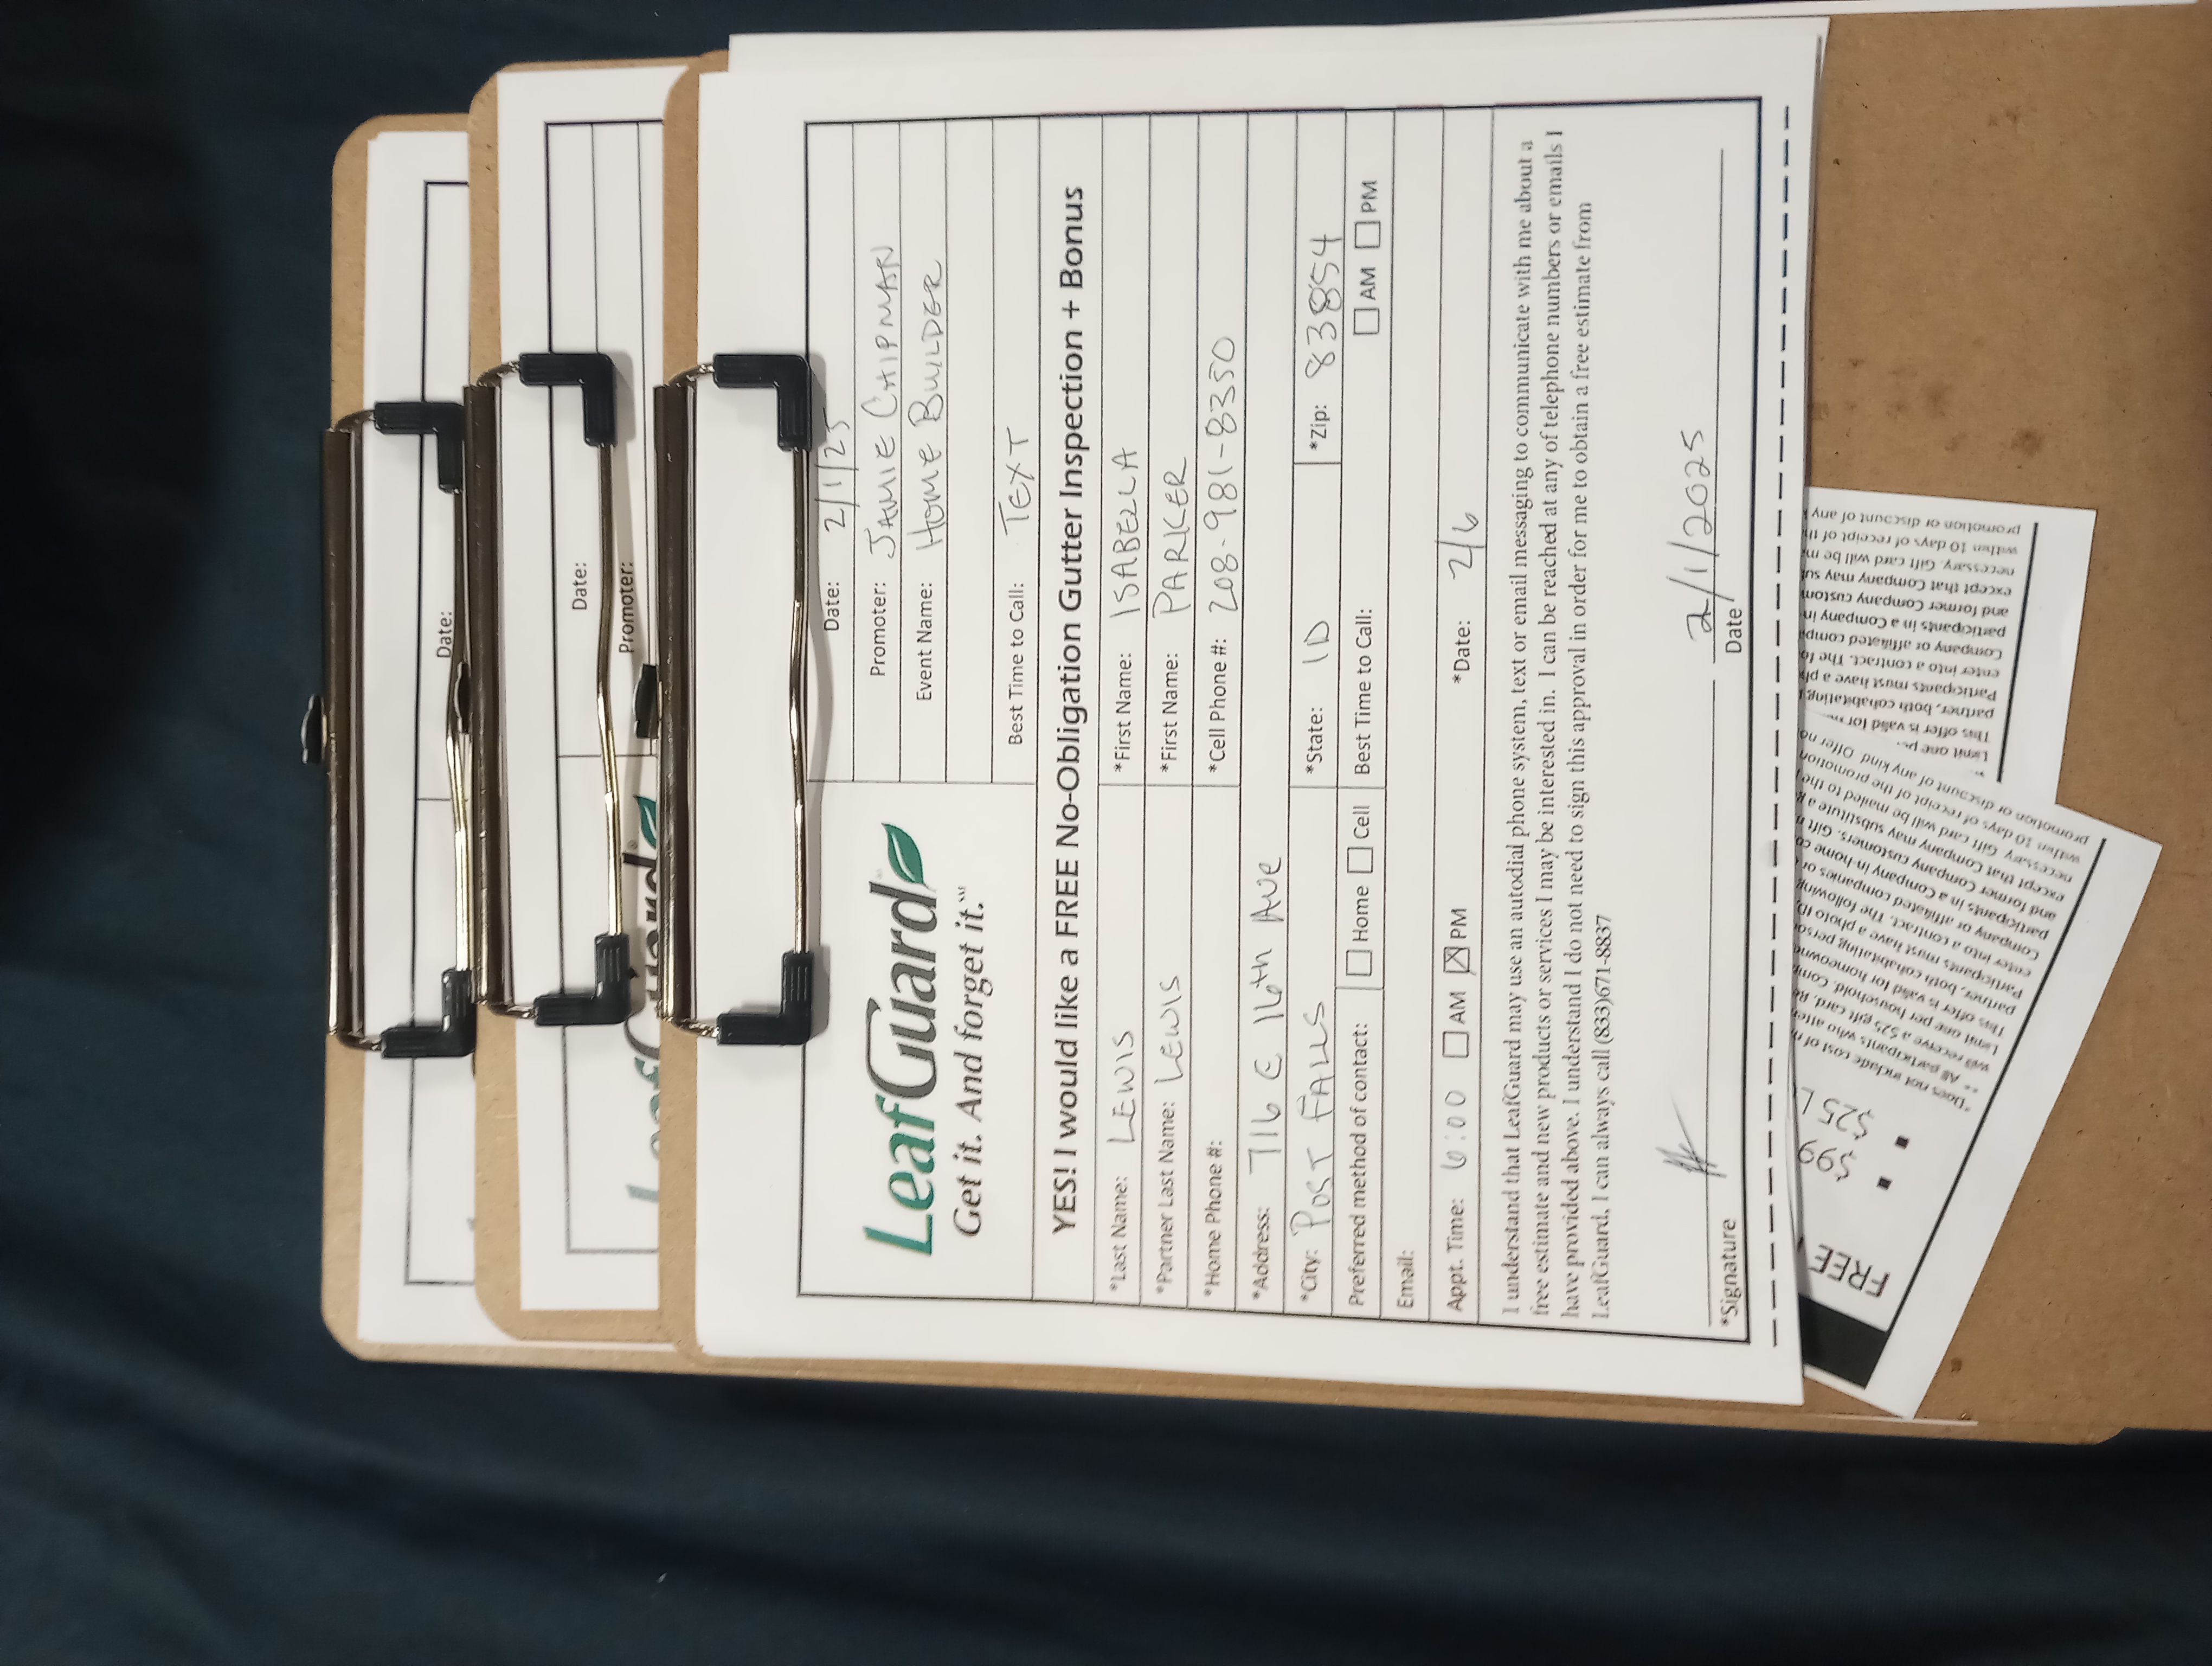 Date:
Date:
LeafGuard®
Promoter:
Date: 2/1/25
LeafGuard
Promoter: JAMIE CHIPMAN
Get it. And forget it.
Event Name: HOME BUILDER
Best Time to Call: TEXT
YES! I would like a FREE No-Obligation Gutter Inspection + Bonus
*Last Name: LEWIS *First Name: ISABELLA
*Partner Last Name: LEWIS *First Name: PARKER
*Home Phone #: *Cell Phone #: 208-981-8350
*Address: 716 E 16th Ave
*City: POST FALLS *State: ID *Zip: 83854
Preferred method of contact: Home Cell Best Time to Call: AM PM
Email:
Appt. Time: 6:00 AM PM *Date: 2/6
I understand that LeafGuard may use an autodial phone system, text or email messaging to communicate with me about a
free estimate and new products or services I may be interested in. I can be reached at any of telephone numbers or emails I
have provided above. I understand I do not need to sign this approval in order for me to obtain a free estimate from
LeafGuard, I can always call (833)671-8837
2/1/2025
*Signature Date
FREE
$99
$25
*Does not include cost of
** All participants who
will receive a $25 gift card.
Limit one per household.
This offer is valid for homeowners
partner, both cohabitating
Participants must have a photo ID,
enter into a contract. The following
Company or affiliated companies or
participants in a Company in-home
and former Company customers. Gift
except that Company may substitute a
necessary. Gift card will be mailed to the
within 10 days of receipt of the promotion
promotion or discount of any kind. Offer
Limit one
This offer is valid for
partner, both cohabitating
Participants must have a
enter into a contract. The
Company or affiliated
participants in a Company
and former Company
except that Company may
necessary. Gift card will be
within 10 days of receipt of
promotion or discount of any